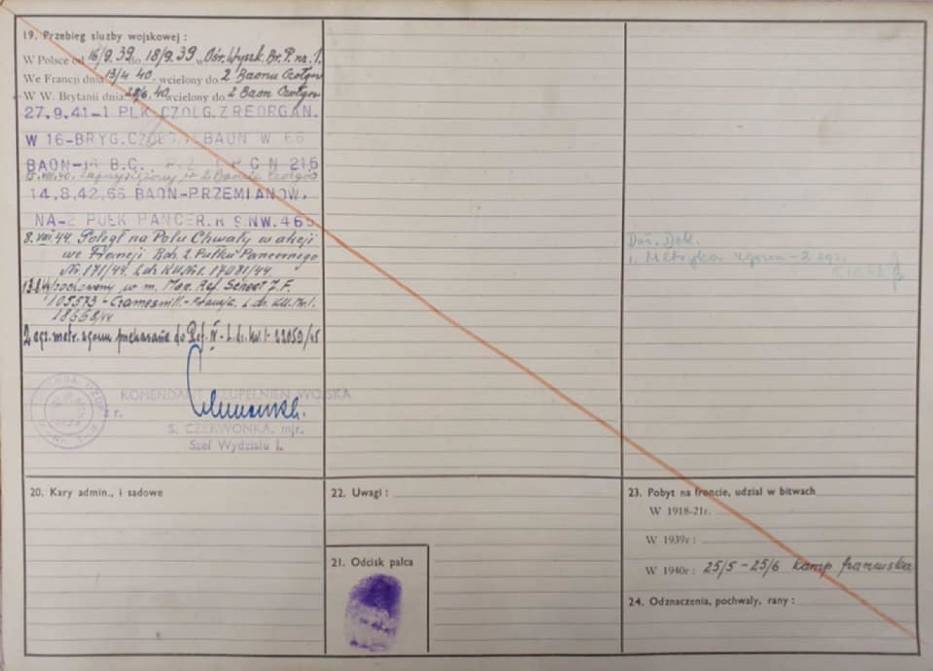 19. Przebieg służby wojskowej :
W Polsce od 16/9.39 do 18/9.39 w Ośr. Wyszk. Br. P. nr. 1.
We Francji dnia 13/4 40. wcielony do 2 Baonu Czołgów
W W. Brytanii dnia 28/6.40. wcielony do 2 Baon Czołgów
27.9.41-1 PLK CZOLG. ZREORGAN.
W 16-BRYG. CZOŁG. BAON W 66
BAON- B.C. 216
2 Baonie Czołgów
14.8.42, 66 BAON-PRZEMIANOW.
NA-2 PUŁK PANCER. R 9 NW. 465
8.VIII.44. Poległ na Polu Chwały w akcji
we Francji Roz. 2 Pułku Pancernego
Nr. 171/44. L.dz. 17081/44
Pochowany w m. Map. Ref. Sheet 7.F.
105573 - Francja. L. dz. KU.Nr.I.
18668/44
2 egz. metr. zgonu przekazane do Ref. - L. dz. 22059/45
KOMENDANT UZUPEŁNIEŃ WOJSKA
S. CZERWONKA, mjr.
Szef Wydziału I.
Metryka zgonu - 2 egz.
20. Kary admin., i sadowe
22. Uwagi :
21. Odcisk palca
23. Pobyt na froncie, udział w bitwach
W 1918-21r.
W 1939r :
W 1940r : 25/5 - 25/6 kamp francuska
24. Odznaczenia, pochwały, rany :